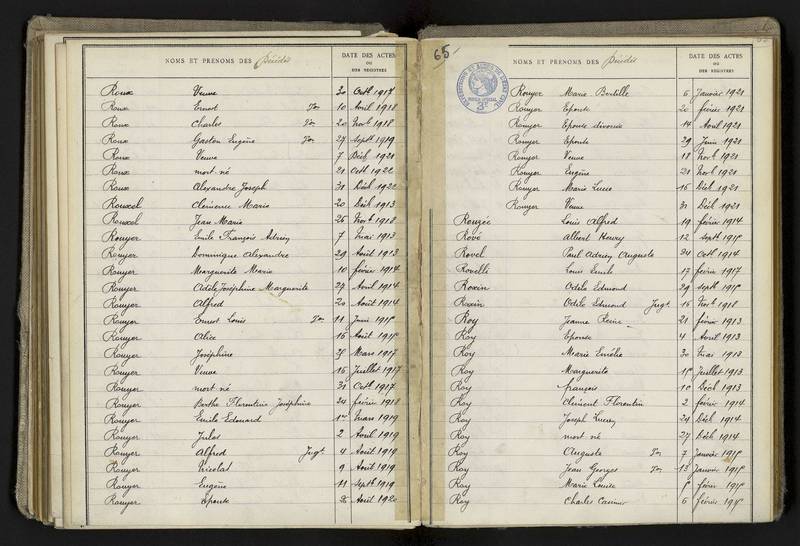 NOMS ET PRENOMS DES Décédés
DATE DES ACTES
OU
DES REGISTRES
Roux Veuve 30 Octb 1917
Roux Ernest Ton 10 Avril 1918
Roux Charles Ton 20 Novb 1918
Roux Gaston Eugène Ton 27 Septb 1919
Roux Veuve 7 Décb 1921
Roux mort né 21 Octb 1922
Roux Alexandre Joseph 31 Décb 1922
Rouxel Clémence Marie 20 Décb 1913
Rouxel Jean Marie 26 Novb 1918
Rouyer Emile François Adrien 7 Mai 1913
Rouyer Dominique Alexandre 29 Août 1913
Rouyer Marguerite Marie 10 février 1914
Rouyer Adèle Joséphine Marguerite 27 Avril 1914
Rouyer Alfred 20 Août 1914
Rouyer Ernest Louis Ton 11 Juin 1915
Rouyer Alice 16 Août 1915
Rouyer Joséphine Mars 1917
Rouyer Veuve 16 Juillet 1917
Rouyer mort né 31 Octb 1917
Rouyer Berthe Florentine Joséphine 24 février 1918
Rouyer Emile Edouard 1er Mars 1919
Rouyer Jules 2 Avril 1919
Rouyer Alfred Jugt 4 Août 1919
Rouyer Nicolas 9 Août 1919
Rouyer Eugène 11 Septb 1919
Rouyer Epouse Août 1920
65
NOMS ET PRENOMS DES Décédés
DATE DES ACTES
OU
DES REGISTRES
Rouyer Marie Bertille 6 Janvier 1921
Rouyer Epouse 20 février 1921
Rouyer Epouse divorcée 14 Avril 1921
Rouyer Epouse 29 Juin 1921
Rouyer Veuve 18 Novb 1921
Rouyer Eugène 21 Novb 1921
Rouyer Marie Lucie 16 Décb 1921
Rouyer Veuve 31 Décb 1921
Rouzée Louis Alfred 19 février 1914
Rové Albert Henry 12 Septb 1915
Rovel Paul Adrien Auguste 24 Octb 1914
Rovelle Louis Emile 17 février 1917
Roxin Odile Edmond 29 Septb 1915
Roxin Odile Edmond Jugt 16 Novb 1918
Roy Jeanne Reine 21 février 1913
Roy Epouse 4 Avril 1913
Roy Marie Emélie 30 Mai 1913
Roy Marguerite 15 Juillet 1913
Roy François 10 Décb 1913
Roy Clément Florentin 2 février 1914
Roy Joseph Lucien 24 Décb 1914
Roy mort né 27 Décb 1914
Roy Auguste Ton 7 Janvier 1915
Roy Jean Georges Ton 13 Janvier 1915
Roy Marie Louise 5 février 1915
Roy Charles Casimir 6 février 1915